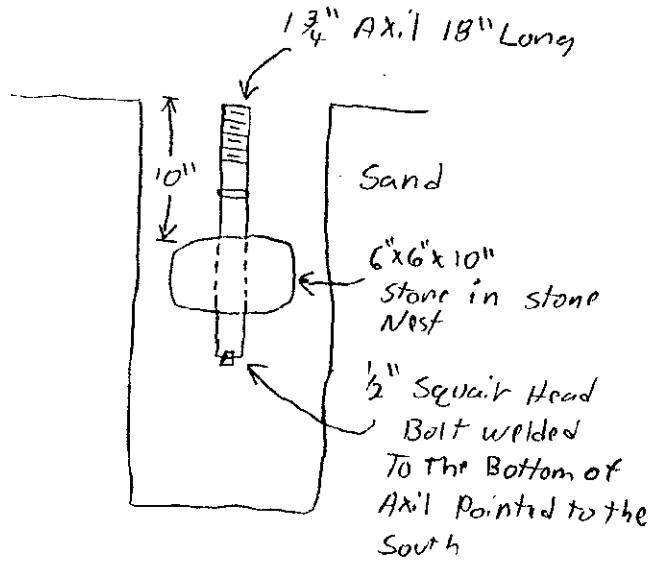 1 3/4" Axil 18" Long
10"
Sand
6"x6"x10"
Stone in stone
Nest
1/2" Squair Head
Bolt welded
To The Bottom of
Axil Pointed to the
South